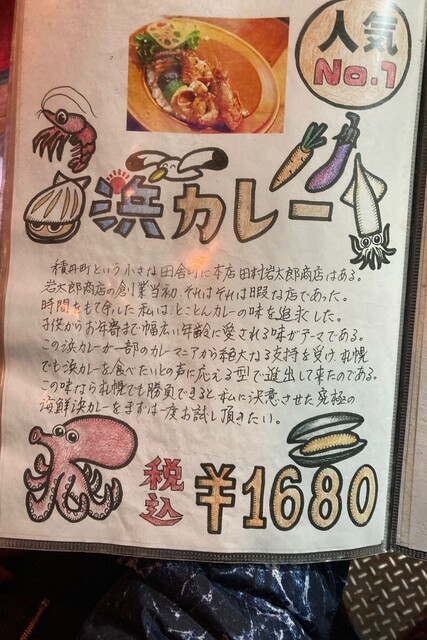 人気
No.1
浜カレー
積丹町という小さな田舎町に本店 田村岩太郎商店はある。
岩太郎商店の創業当初、それはそれは暇な店であった。
時間をもて余した私は、とことんカレーの味を追求した。
子供からお年寄まで幅広い年齢に愛される味がテーマである。
この浜カレーが一部のカレーマニアから絶大なる支持を受け、札幌
でも浜カレーを食べたいとの声に応える型で進出して来たのである。
この味なら札幌でも勝負できると私に決意させた究極の
海鮮浜カレーをまずは一度お試し頂きたい。
税込 ¥1680